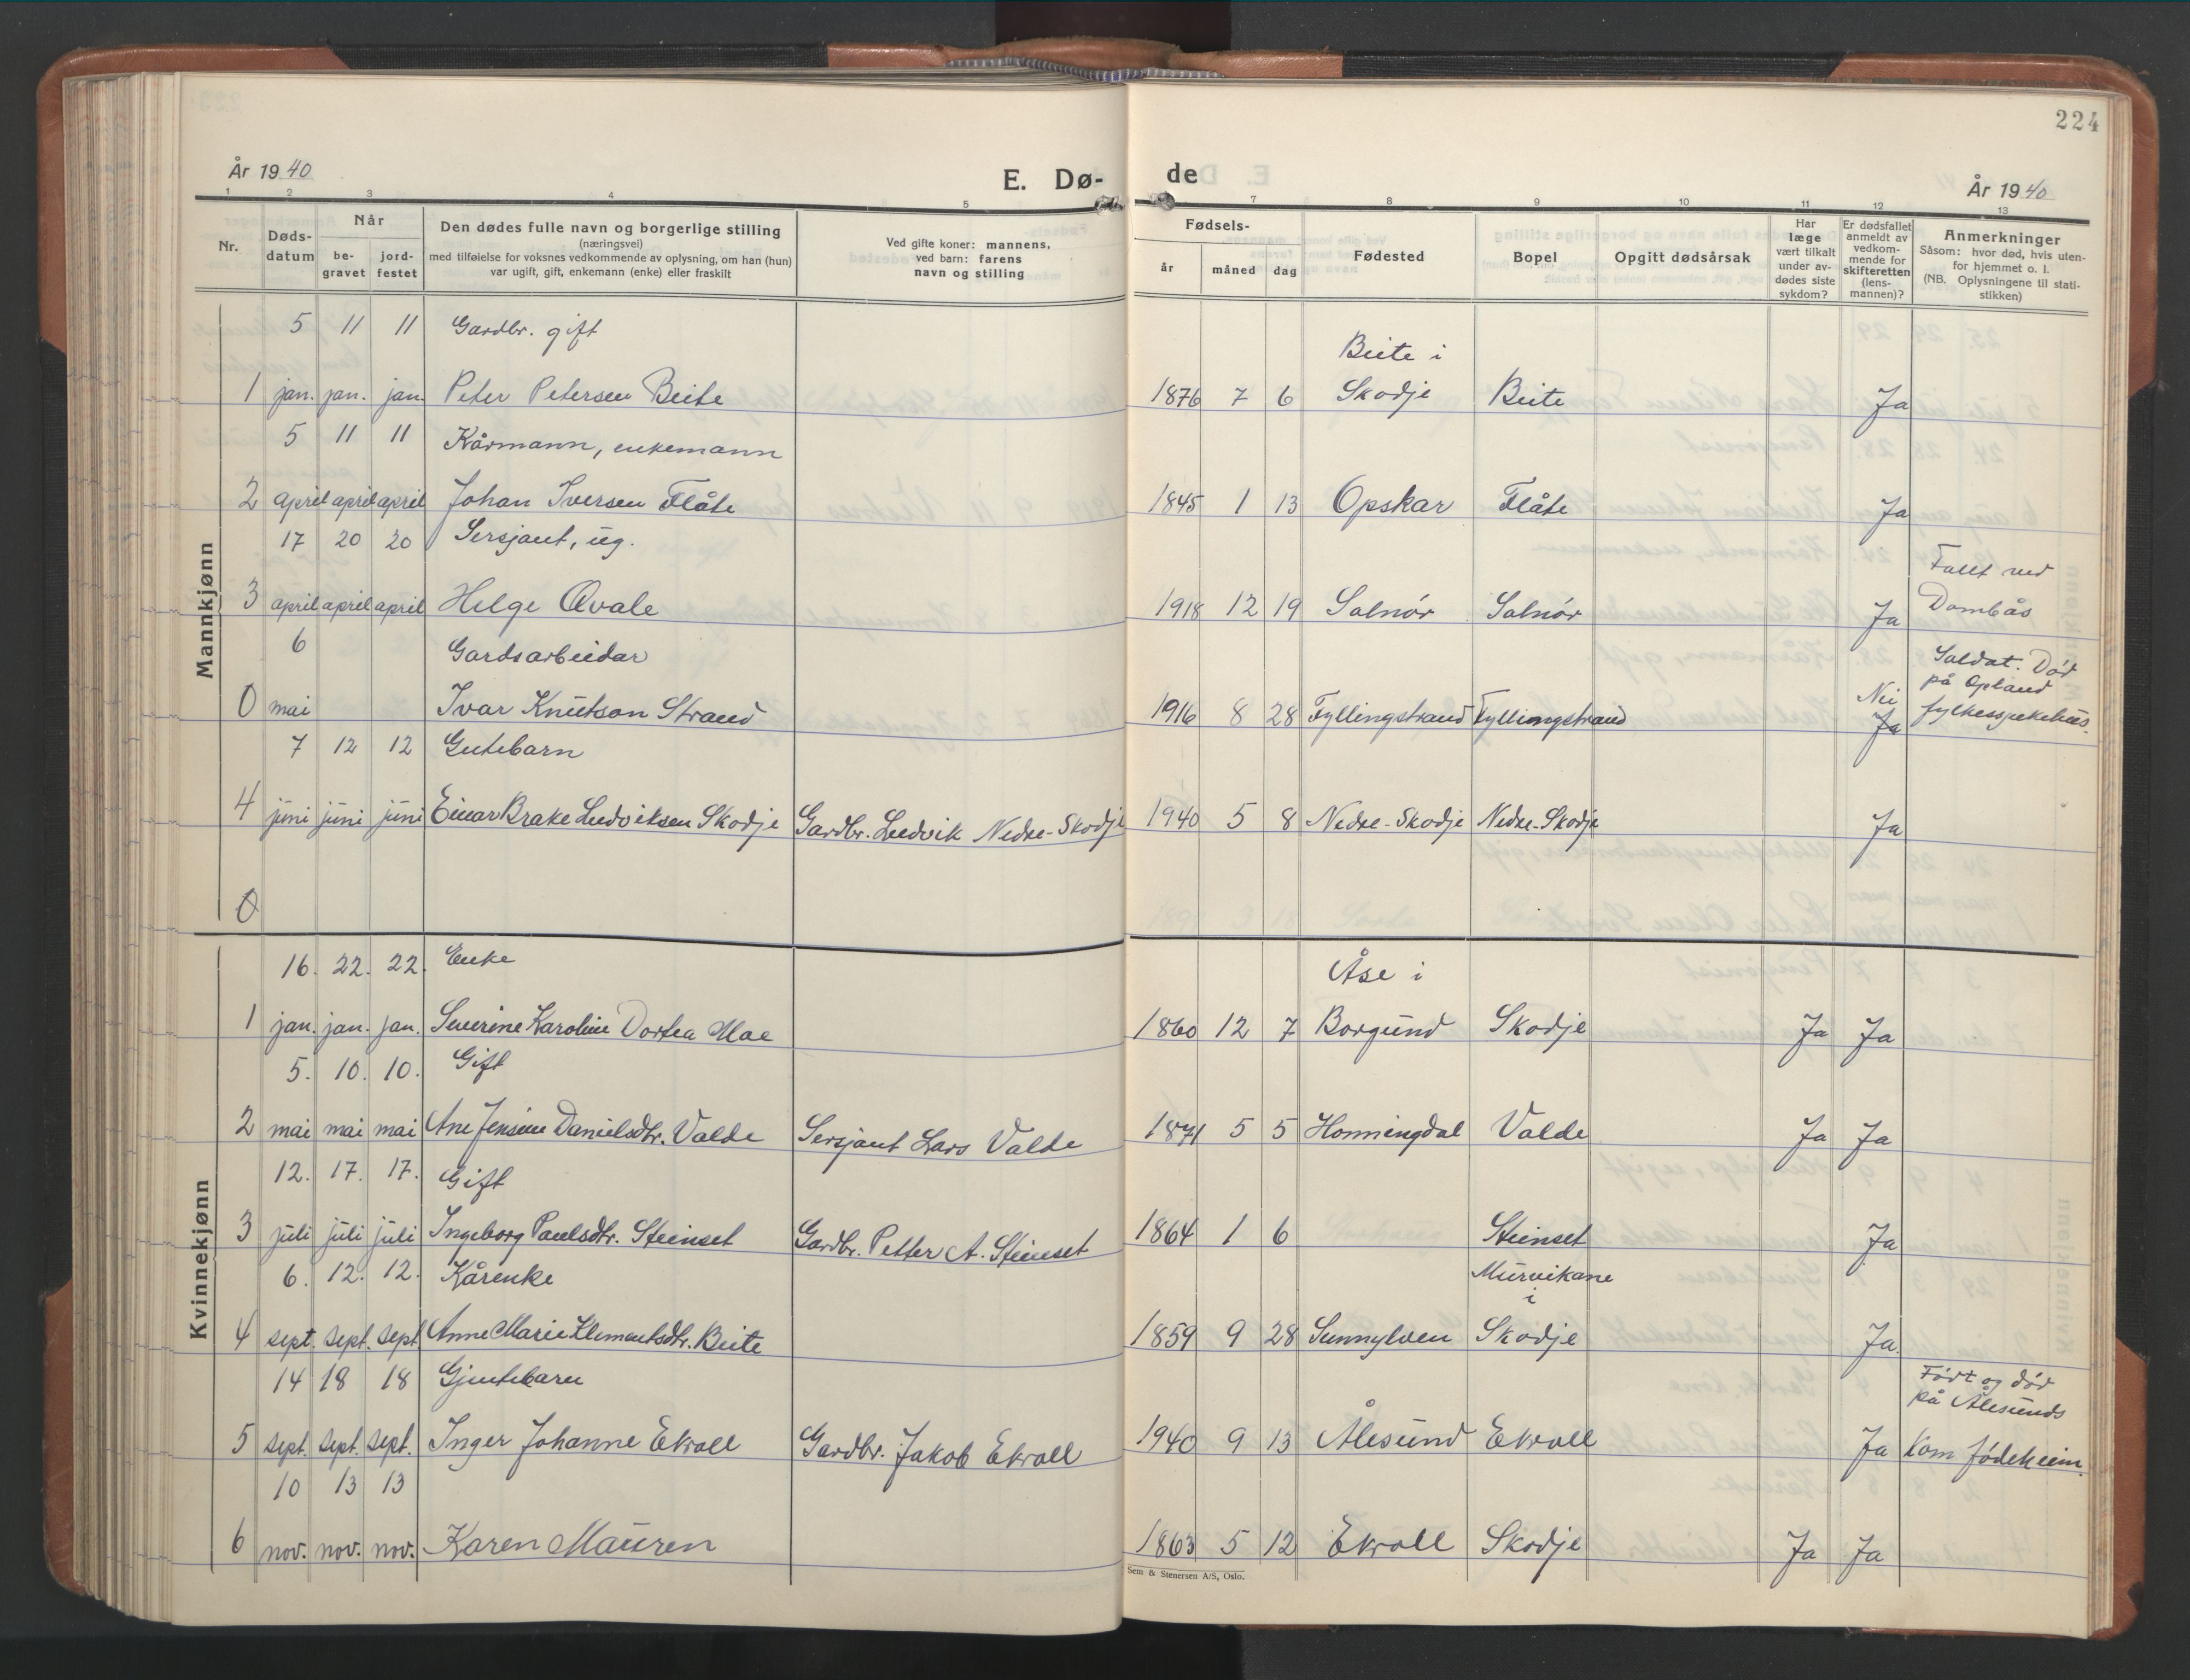 224
År 1940
E. Dø-
de
År 1940
1 2 3 4 5
7 8 9 10 11 12 13
Nr.
Døds-
datum
Når
be-
gravet
jord-
festet
Den dødes fulle navn og borgerlige stilling
(næringsvei)
med tilføielse for voksnes vedkommende av oplysning, om han (hun)
var ugift, gift, enkemann (enke) eller fraskilt
Ved gifte koner: mannens,
ved barn: farens
navn og stilling
Fødsels-
år måned dag
Fødested
Bopel
Opgitt dødsårsak
Har
læge
vært tilkalt
under av-
dødes siste
sykdom?
Er dødsfallet
anmeldt av
vedkom-
mende for
skifteretten
(lens-
mannen)?
Anmerkninger
Såsom: hvor død, hvis uten-
for hjemmet o. l.
(NB. Oplysningene til stati-
stikken)
Mannkjønn
5 11 11 Gardbr. gift
Beite i
1 jan. jan. jan. Peter Petersen Beite 1876 7 6 Skodje Beite Ja
5 11 11 Kårmann, enkemann
2 april april april Johan Iversen Flåte 1845 1 13 Opskar Flåte Ja
17 20 20 Sersjant, ug.
Fallt ved
3 april april april Helge Qvale 1918 12 19 Solnør Solnør Ja Dombås
6 Gardsarbeidar
Soldat. Død
på Opland
Nei
0 mai Ivar Knutson Strand 1916 8 28 Fyllingstrand Fyllingstrand Ja fylkessjukehus.
7 12 12 Gutebarn
4 juni juni juni Einar Brake Ludviksen Skodje Gardbr. Ludvik Nedre-Skodje 1940 5 8 Nedre-Skodje Nedre-Skodje Ja
0
Kvinnekjønn
16. 22. 22. Enke
Åse i
1 jan. jan. jan. Severine Karoline Dortea Moe 1860 12 7 Borgund Skodje Ja Ja
5. 10. 10. Gift
2 mai mai mai Ane Jensine Danielsdtr. Valde Sersjant Lars Valde 1871 5 5 Honningdal Valde Ja Ja
12. 17. 17. Gift
3 juli juli juli Ingeborg Paulsdtr. Steinset Gardbr. Petter A. Steinset 1864 1 6 Steinset Ja
6. 12. 12. Kårenke
Murvikane
i
4 sept. sept. sept. Anne Marie Klementsdtr. Beite 1859 9 28 Sunnylven Skodje Ja.
14 18 18 Gjentebarn
Født og død
på Ålesunds
5 sept. sept. sept. Inger Johanne Ekroll Gardbr. Jakob Ekroll 1940 9 13 Ålesund Ekroll Ja Kom fødeheim.
10 13 13
6 nov. nov. nov. Karen Mauren 1863 5 12 Ekroll Skodje Ja Ja
Sem & Stenersen A/S, Oslo.